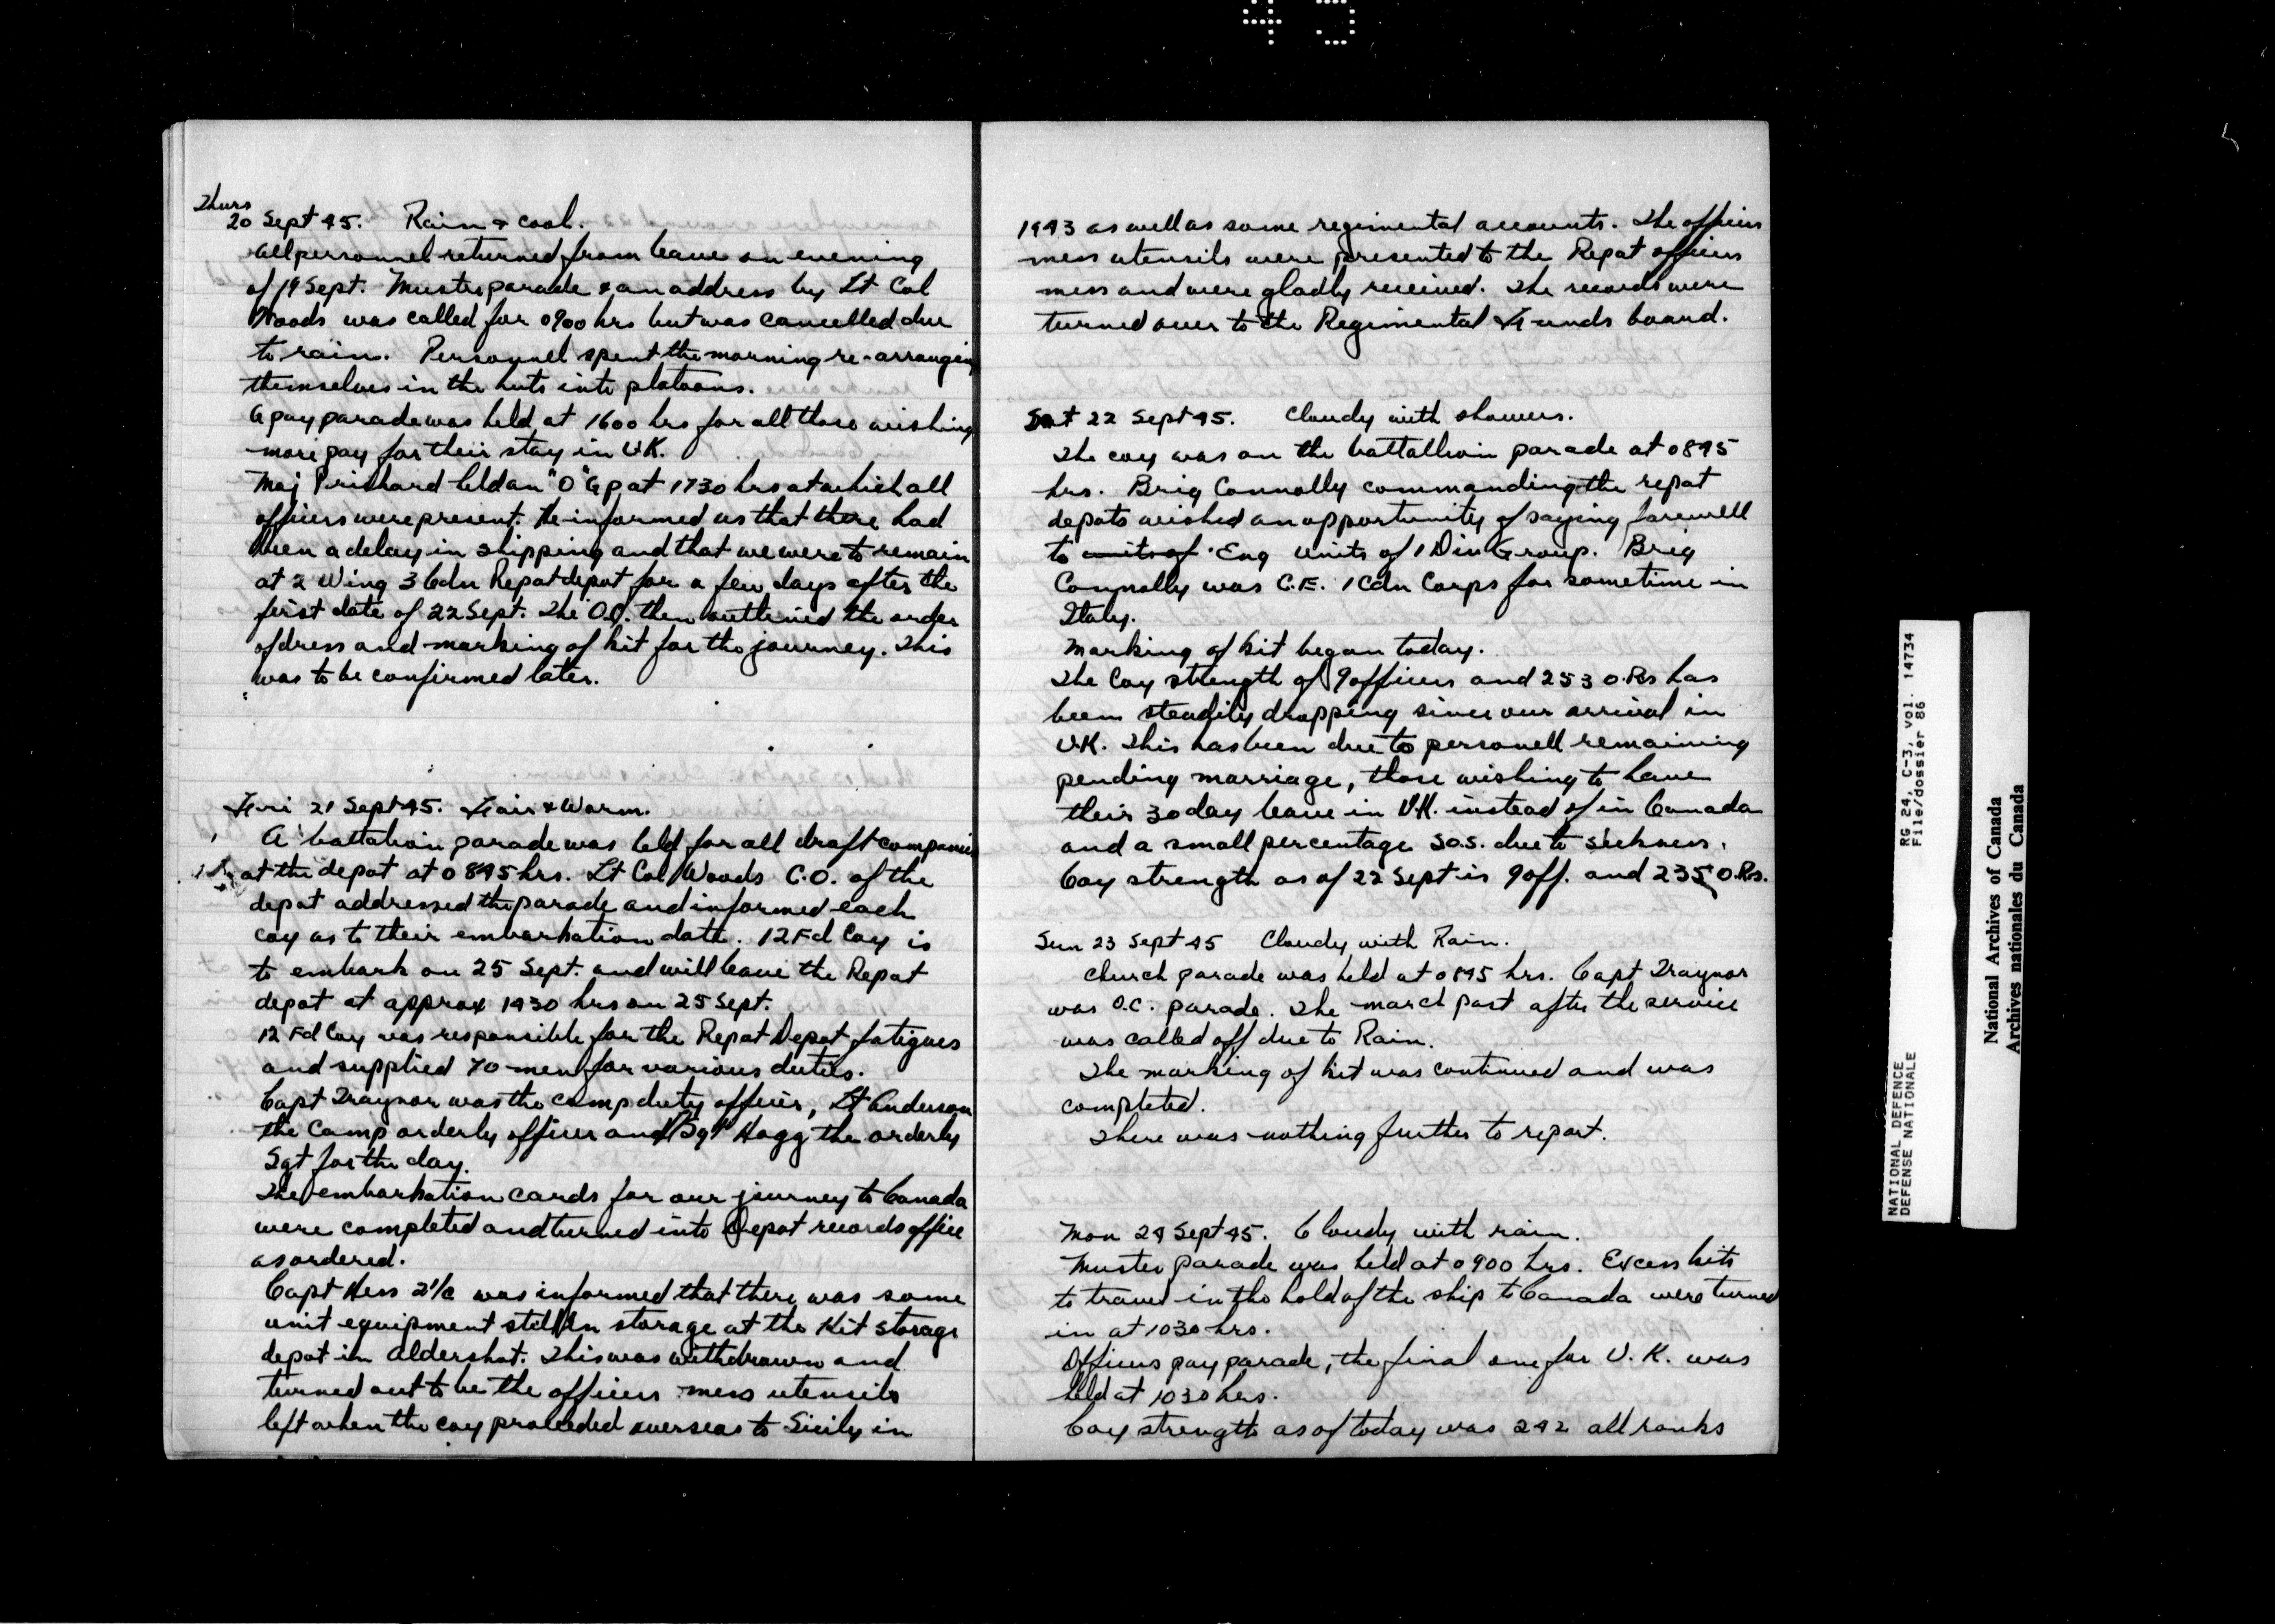 43
Thurs
20 Sept 45. Rain & cool.
All personnel returned from leave on evening
of 19 Sept. Muster parade & an address by Lt Col
Woods was called for 0900 hrs but was cancelled due
to rain. Personnel spent the morning re-arranging
themselves in the huts into platoons.
A pay parade was held at 1600 hrs for all those wishing
more pay for their stay in U.K.
Maj Prichard held an "O" Gp at 1730 hrs at which all
officers were present. He informed us that there had
been a delay in shipping and that we were to remain
at 2 Wing 3 Cdn Repat depot for a few days after the
first date of 22 Sept. The O.C. then outlined the order
of dress and marking of kit for the journey. This
was to be confirmed later.
Fri 21 Sept 45. Fair & Warm.
A battalion parade was held for all draft companies
at the depot at 0845 hrs. Lt Col Woods C.O. of the
depot addressed the parade and informed each
coy as to their embarkation date. 12 Fd Coy is
to embark on 25 Sept. and will leave the Repat
depot at approx 1430 hrs on 25 Sept.
12 Fd Coy was responsible for the Repat Depot fatigues
and supplied 70 men for various duties.
Capt Traynor was the camp duty officer, Lt Anderson
the Camp orderly officer and Sgt Hogg the orderly
Sgt for the day.
The embarkation cards for our journey to Canada
were completed and turned into Depot records office
as ordered.
Capt Hess 2i/c was informed that there was some
unit equipment still in storage at the Kit Storage
depot in Aldershot. This was withdrawn and
turned out to be the officers mess utensils
left when the coy proceeded overseas to Sicily in
1943 as well as some regimental accounts. The officers
mess utensils were presented to the Repat officers
mess and were gladly received. The records were
turned over to the Regimental Funds board.
Sat 22 Sept 45. Cloudy with showers.
The coy was on the battallion parade at 0845
hrs. Brig Connolly commanding the repat
depots wished an opportunity of saying farewell
to units of Eng units of 1 Div Group. Brig
Connolly was C.E. 1 Cdn Corps for sometime in
Italy.
Marking of kit began today.
The Coy strength of 9 officers and 253 O.Rs has
been steadily dropping since our arrival in
U.K. This has been due to personell remaining
pending marriage, those wishing to have
their 30 day leave in U.K. instead of in Canada
and a small percentage S.O.S. due to sickness.
Coy strength as of 22 Sept is 9 off. and 235 O.Rs.
Sun 23 Sept 45 Cloudy with Rain.
Church parade was held at 0845 hrs. Capt Traynor
was O.C. parade. The march past after the service
was called off due to Rain.
The marking of kit was continued and was
completed.
There was nothing further to report.
Mon 24 Sept 45. Cloudy with rain.
Muster parade was held at 0900 hrs. Excess kits
to travel in the hold of the ship to Canada were turned
in at 1030 hrs.
Officers pay parade, the final one for U.K. was
held at 1030 hrs.
Coy strength as of today was 242 all ranks
NATIONAL DEFENCE RG 24, C-3, vol. 14734
DEFENSE NATIONALE File/dossier 86
National Archives of Canada
Archives nationales du Canada